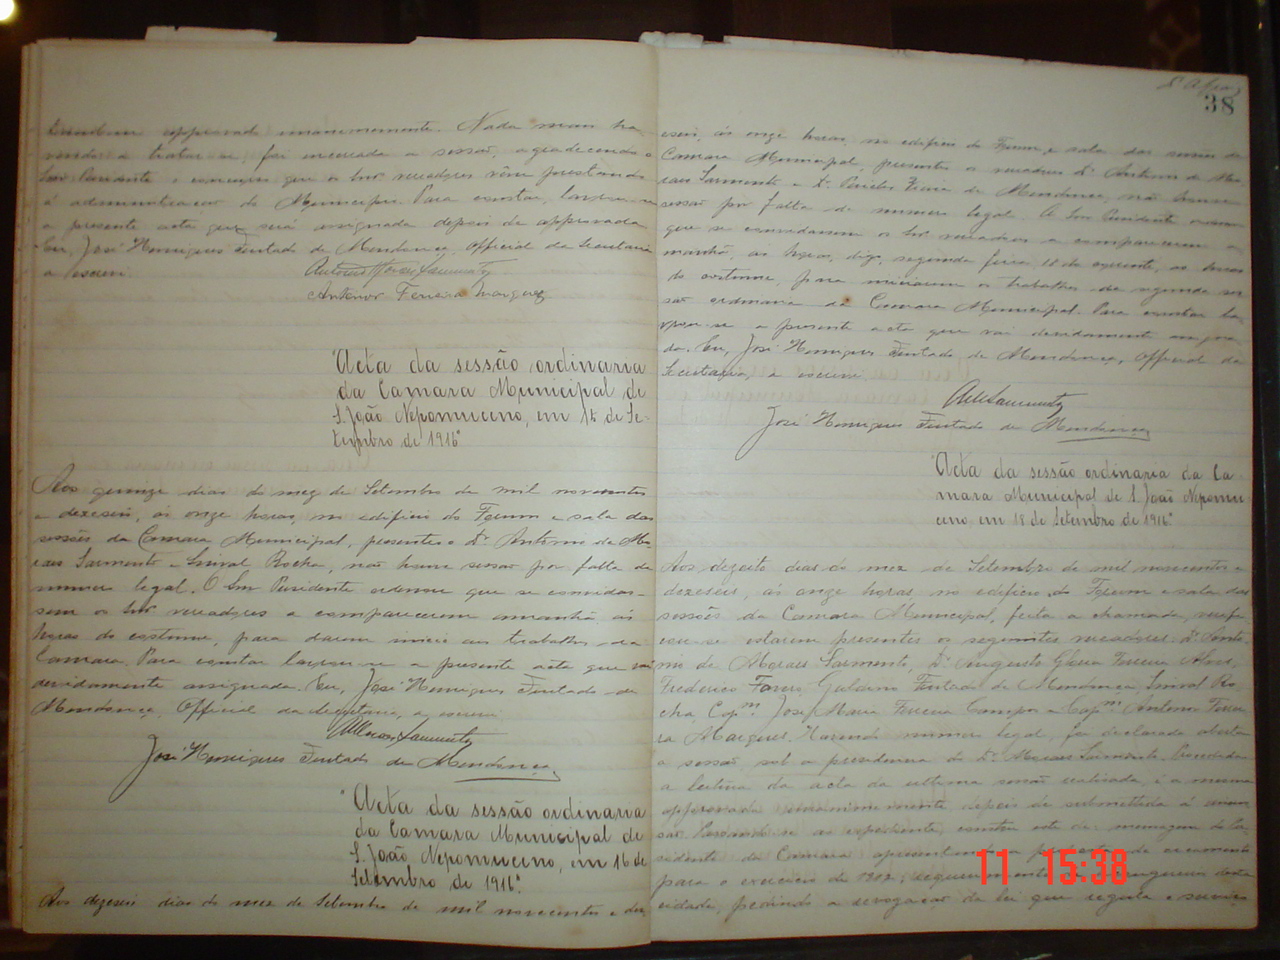 approvada unanimemente. Nada mais ha-
vendo a tratar-se, foi encerrada a sessão, agradecendo o
Snr. Presidente o concurso que os Snrs. vereadores vêm prestando
á administração do Municipio. Para constar, lavrou-se
a presente acta que será assignada depois de approvada.
Eu, José Henriques Furtado de Mendonça, Official da Secretaria
a escrevi.
Antonio Moraes Sarmento
Antenor Ferreira Marques
Acta da sessão ordinaria
da Camara Municipal de
S. João Nepomuceno, em 15 de Se-
tembro de 1916
Aos quinze dias do mez de Setembro de mil novecentos
e dezeseis, ás onze horas, no edificio do Forum e sala das
sessões da Camara Municipal, presentes o Dr. Antonio de Mo-
raes Sarmento e Sinval Rocha, não houve sessão por falta de
numero legal. O Snr. Presidente ordenou que se convidas-
sem os Snrs. vereadores a comparecerem amanhã ás
horas do costume, para darem inicio aos trabalhos da
Camara. Para constar lavrou-se a presente acta que vai
devidamente assignada. Eu, José Henriques Furtado de
Mendonça, Official da Secretaria, a escrevi.
José Henriques Furtado de Mendonça
Acta da sessão ordinaria
da Camara Municipal de
S. João Nepomuceno, em 16 de
Setembro de 1916.
Aos dezeseis dias do mez de Setembro de mil novecentos e dez-
38
eseis, ás onze horas, no edificio do Forum e sala das sessões da
Camara Municipal, presentes os vereadores Dr. Antonio de Mo-
raes Sarmento e Dr. Pericles Vieira de Mendonça, não houve
sessão por falta de numero legal. O Snr. Presidente ordenou
que se convidassem os Snrs. vereadores a comparecerem a-
manhã, as horas, digo, segunda feira, 18 do corrente, as horas
do costume, para iniciarem os trabalhos da segunda ses-
são ordinaria da Camara Municipal. Para constar la-
vrou-se a presente acta que vai devidamente assigna-
da. Eu, José Henriques Furtado de Mendonça, Official da
Secretaria, a escrevi.
José Henriques Furtado de Mendonça
Acta da sessão ordinaria da Ca-
mara Municipal de S. João Nepomu-
ceno, em 18 de Setembro de 1916
Aos dezoito dias do mez de Setembro de mil novecentos e
dezeseis, ás onze horas, no edificio do Forum e sala das
sessões da Camara Municipal, feita a chamada, verifi-
cou-se estarem presentes os seguintes vereadores: Dr. Anto-
nio de Moraes Sarmento, Dr. Augusto Gloria Ferreira Alves,
Frederico Galdino Furtado de Mendonça, Sinval Ro-
cha, Capm. José Maria Ferreira Campos e Capm. Antenor Ferrei-
ra Marques. Havendo numero legal, foi declarada aberta
a sessão, sob a presidencia do Dr. Moraes Sarmento. Procedida
a leitura da acta da ultima sessão realizada, é a mesma
approvada unanimemente depois de submettida á discus-
são. Passando-se ao expediente, constou este de: mensagem do Pre-
sidente da Camara apresentando a proposta de orçamento
para o exercicio de 1917; requerimento
cidade, pedindo a revogação da lei que regula o serviço
11 15:38